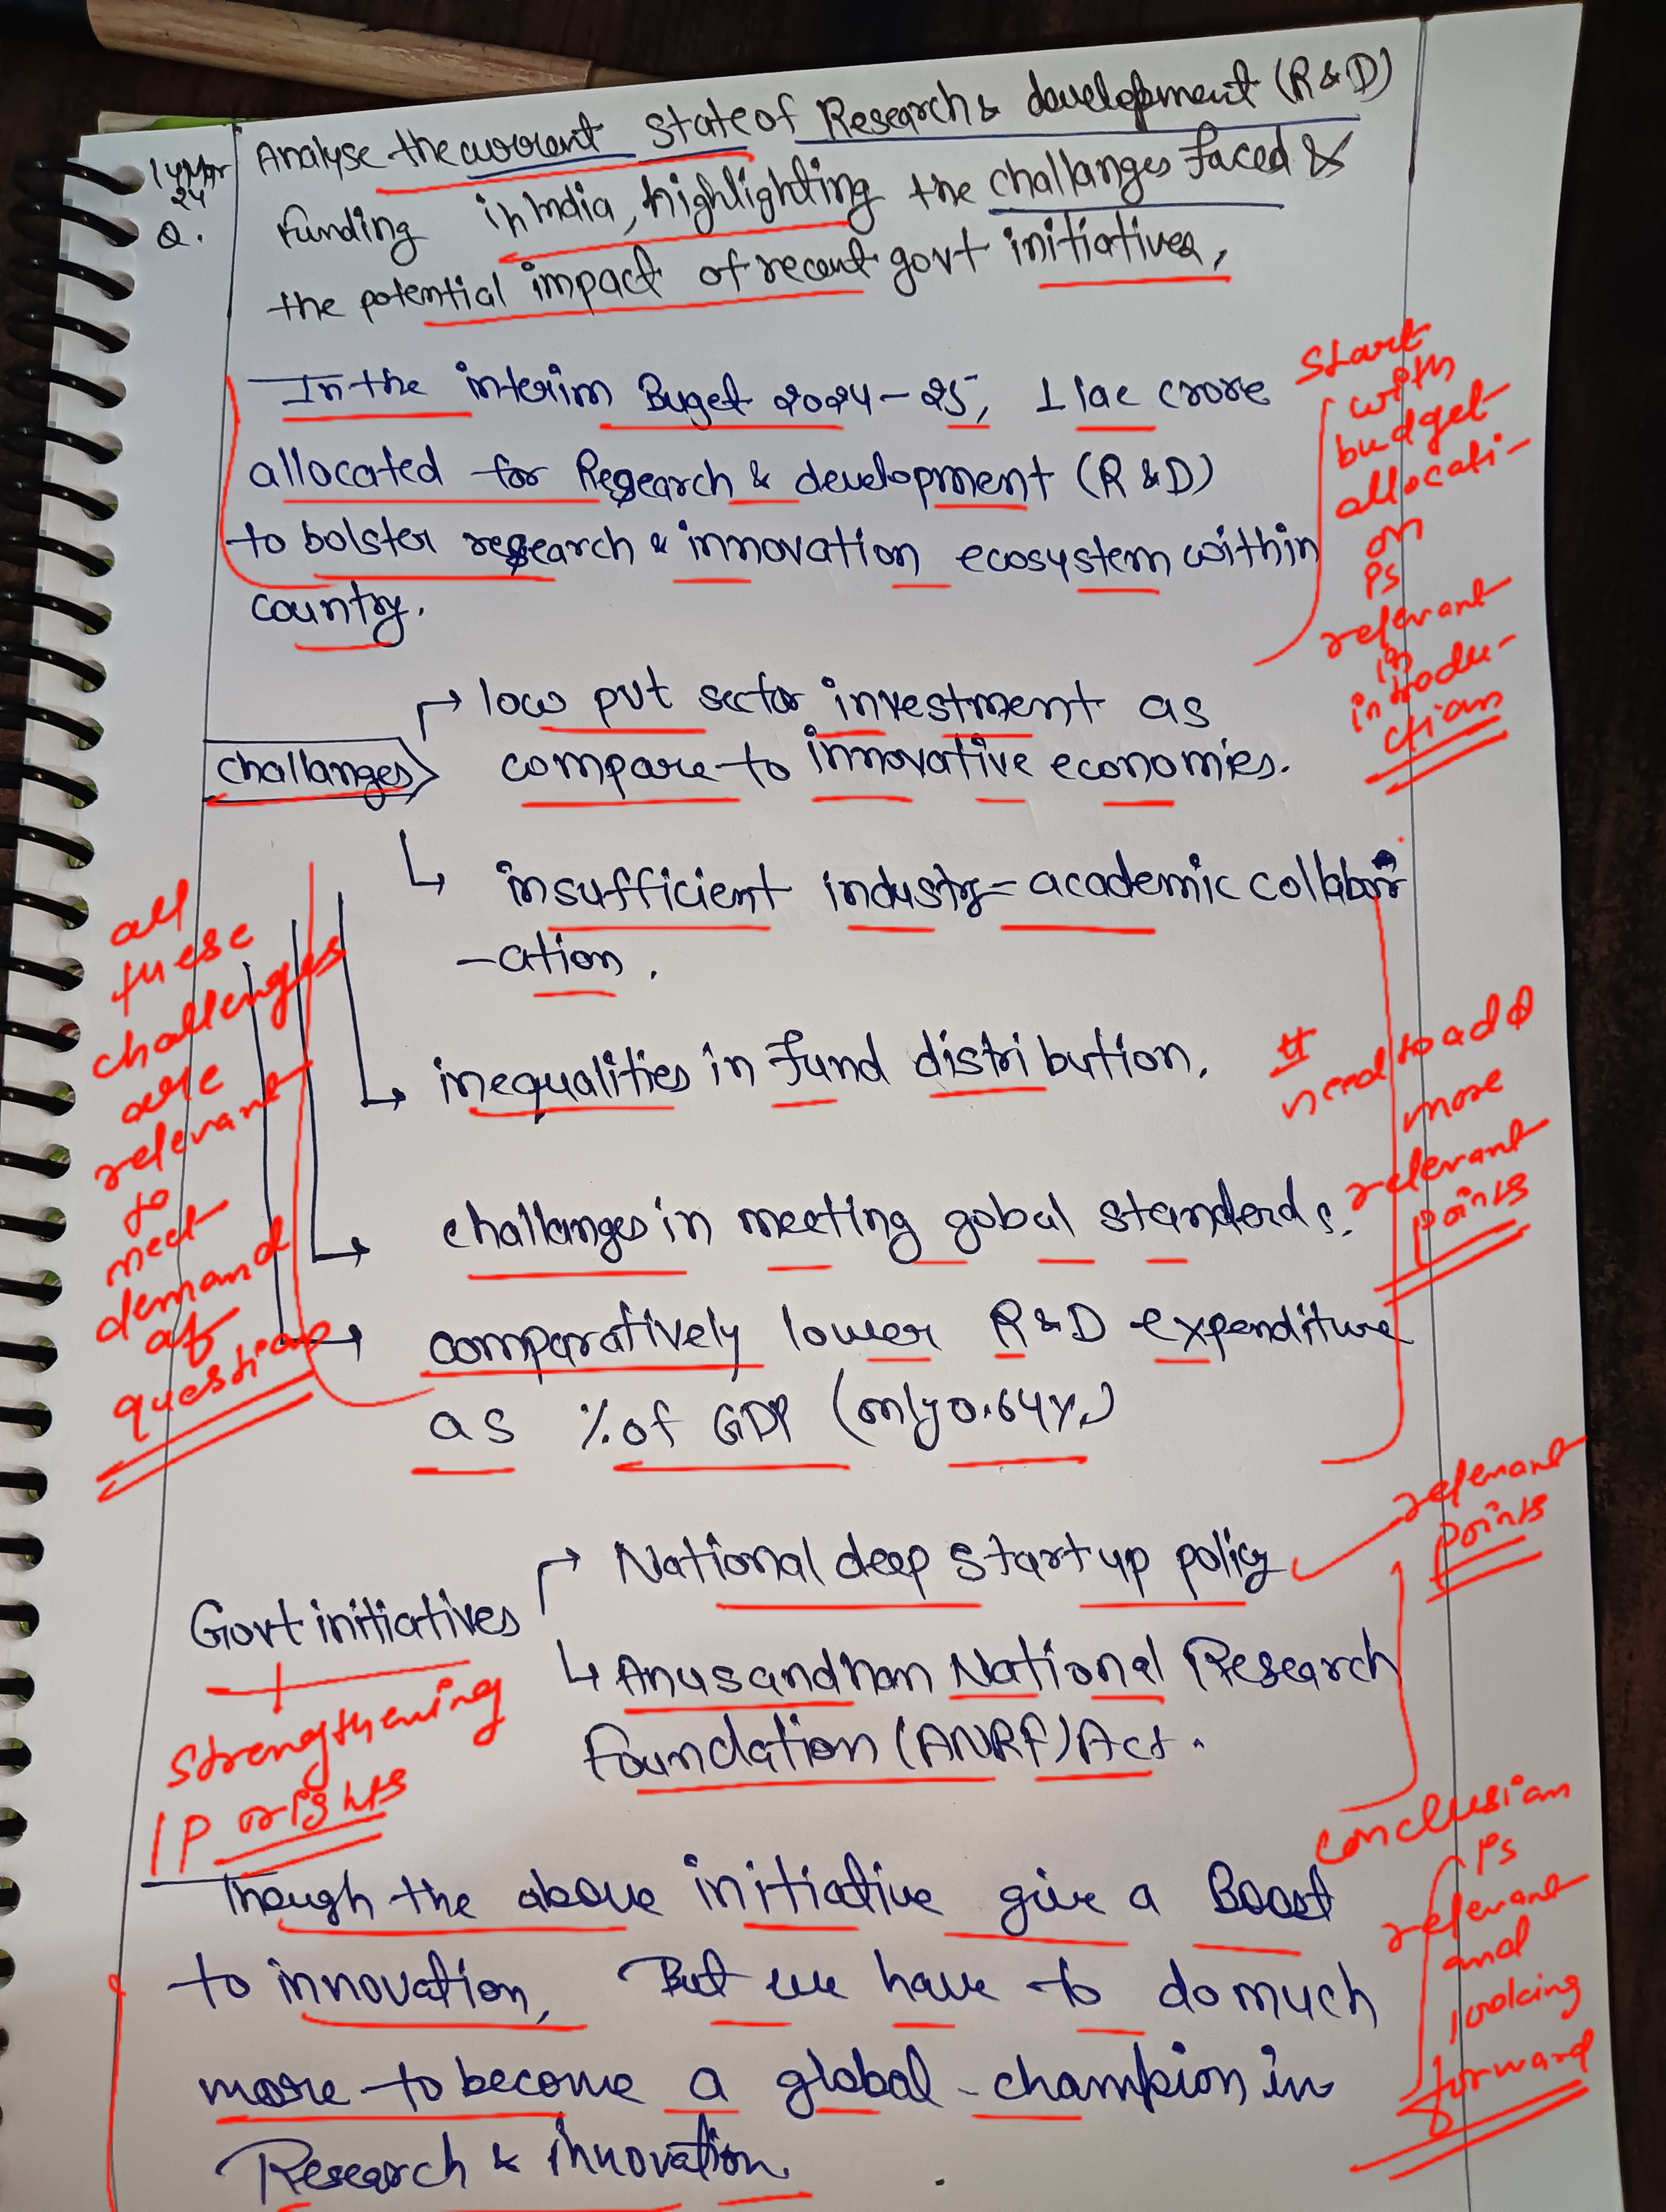 14 Mar
24
Q.
Analyse the current state of Research & development (R&D)
funding in India, highlighting the challanges faced &
the potential impact of recent govt initiatives,
In the interim Buget 2024-25, 1 lac crore
allocated for Research & development (R&D)
to bolster research & innovation ecosystem within
country.
start
with
budget
allocati-
on
is
relevant
in
introdu-
ction
challanges
low pvt sector investment as
compare to innovative economies.
insufficient industry-academic collabor
-ation.
inequalities in fund distribution.
challanges in meeting gobal standerds.
comparatively lower R&D expenditure
as % of GDP (only 0.64%)
all
these
challenges
are
relevant
to
meet
demand
of
question
#
need to add
more
relevant
points
Govt initiatives
National deep startup policy
Anusandhan National Research
foundation (ANRF) Act.
relevant
points
+
strengthening
IP rights
Though the above initiative give a Boost
to innovation, But we have to do much
more to become a global champion in
Research & innovation.
conclusion
is
relevant
and
looking
forward